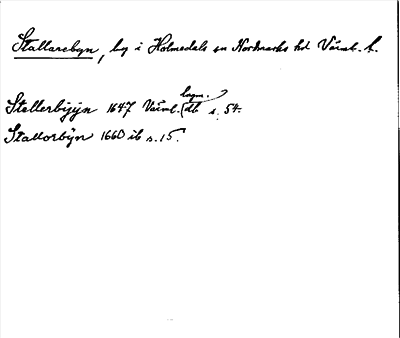 Stallarebyn, by i Holmedals sn Nordmarks hd Värml. l.
Stellerbÿyn 1647 Värml. lagm. db s. 54.
Stallorbÿn 1660 ib s. 15.